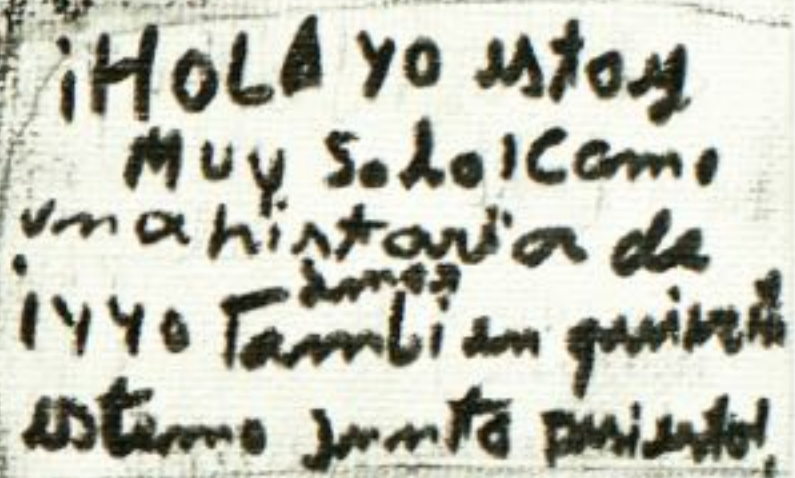 ¡HOLA yo estoy
Muy Solo! Como
una historia de
amor
¡y yo Tambien
estemo junto